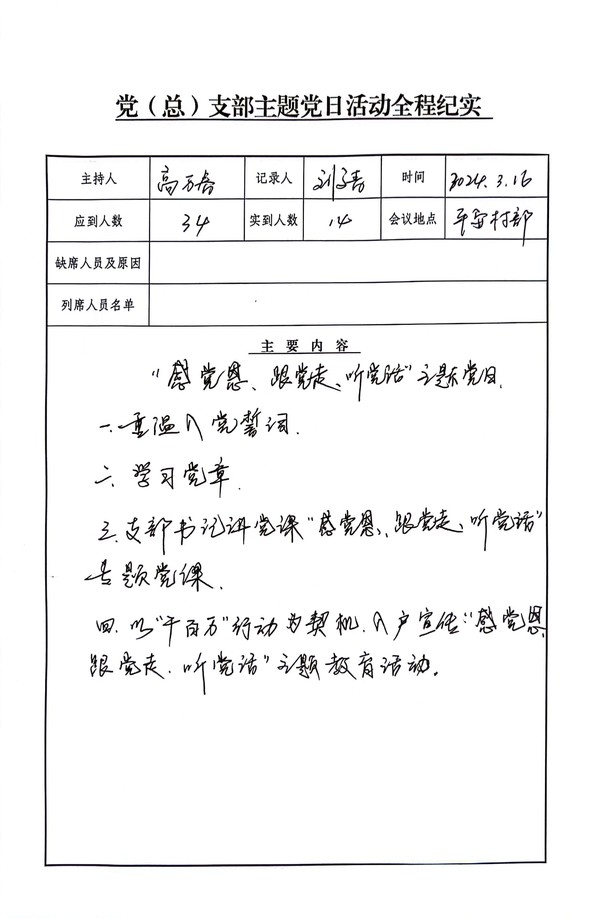 党（总）支部主题党日活动全程纪实
主持人 高万 记录人 刘 时间 2024.3.16
应到人数 34 实到人数 14 会议地点 平安村部
缺席人员及原因
列席人员名单
主要内容
“感党恩、跟党走、听党话”主题党日.
一.重温入党誓词.
二、学习党章.
三.支部书记讲党课“感党恩、跟党走、听党话”
专题党课.
四.以“千百万”行动为契机.入户宣传“感党恩
跟党走.听党话”主题教育活动。